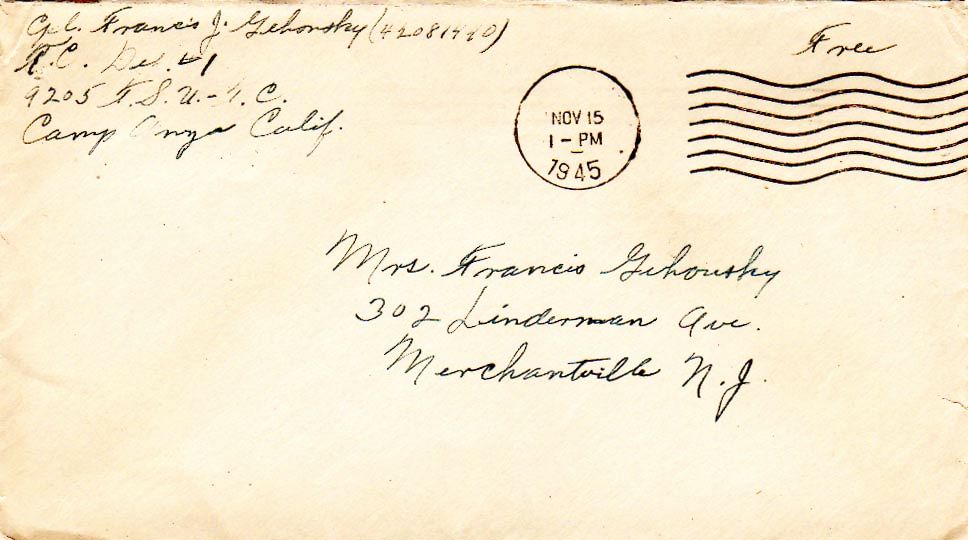 Francis J. Gehousky (42081440)
9205 T.S.U. - T.C.
Camp Anza Calif.
Free
NOV 15
1 - PM
1945
Mrs. Francis Gehousky
302 Linderman Ave.
Merchantville N.J.